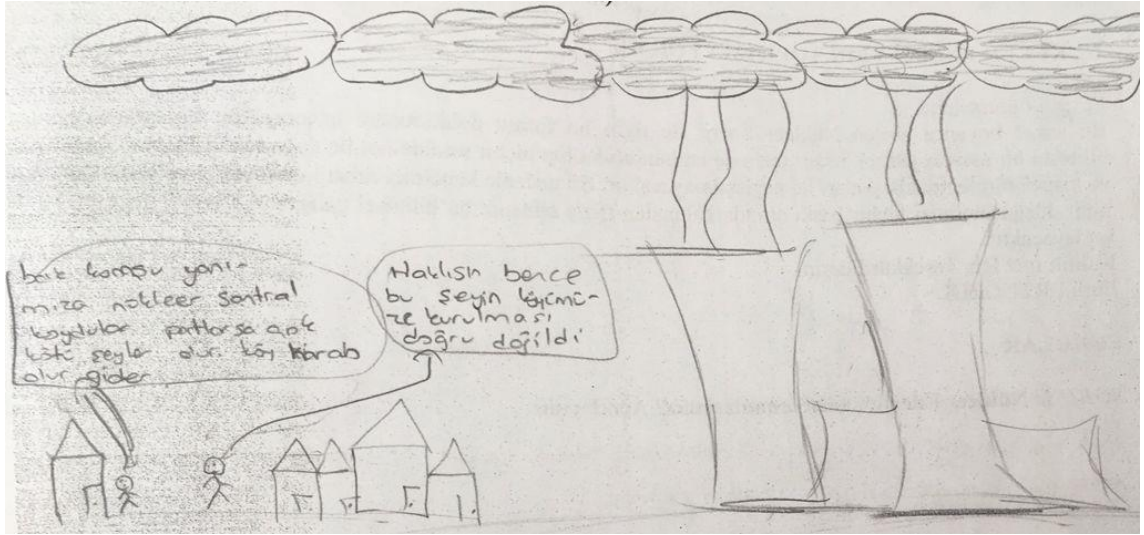 bak komşu yanı-
mıza nükleer santral
koydular patlarsa çok
kötü şeyler olur köy harab
olur gider
Haklısın bence
bu şeyin köyümü-
ze kurulması
doğru değildi